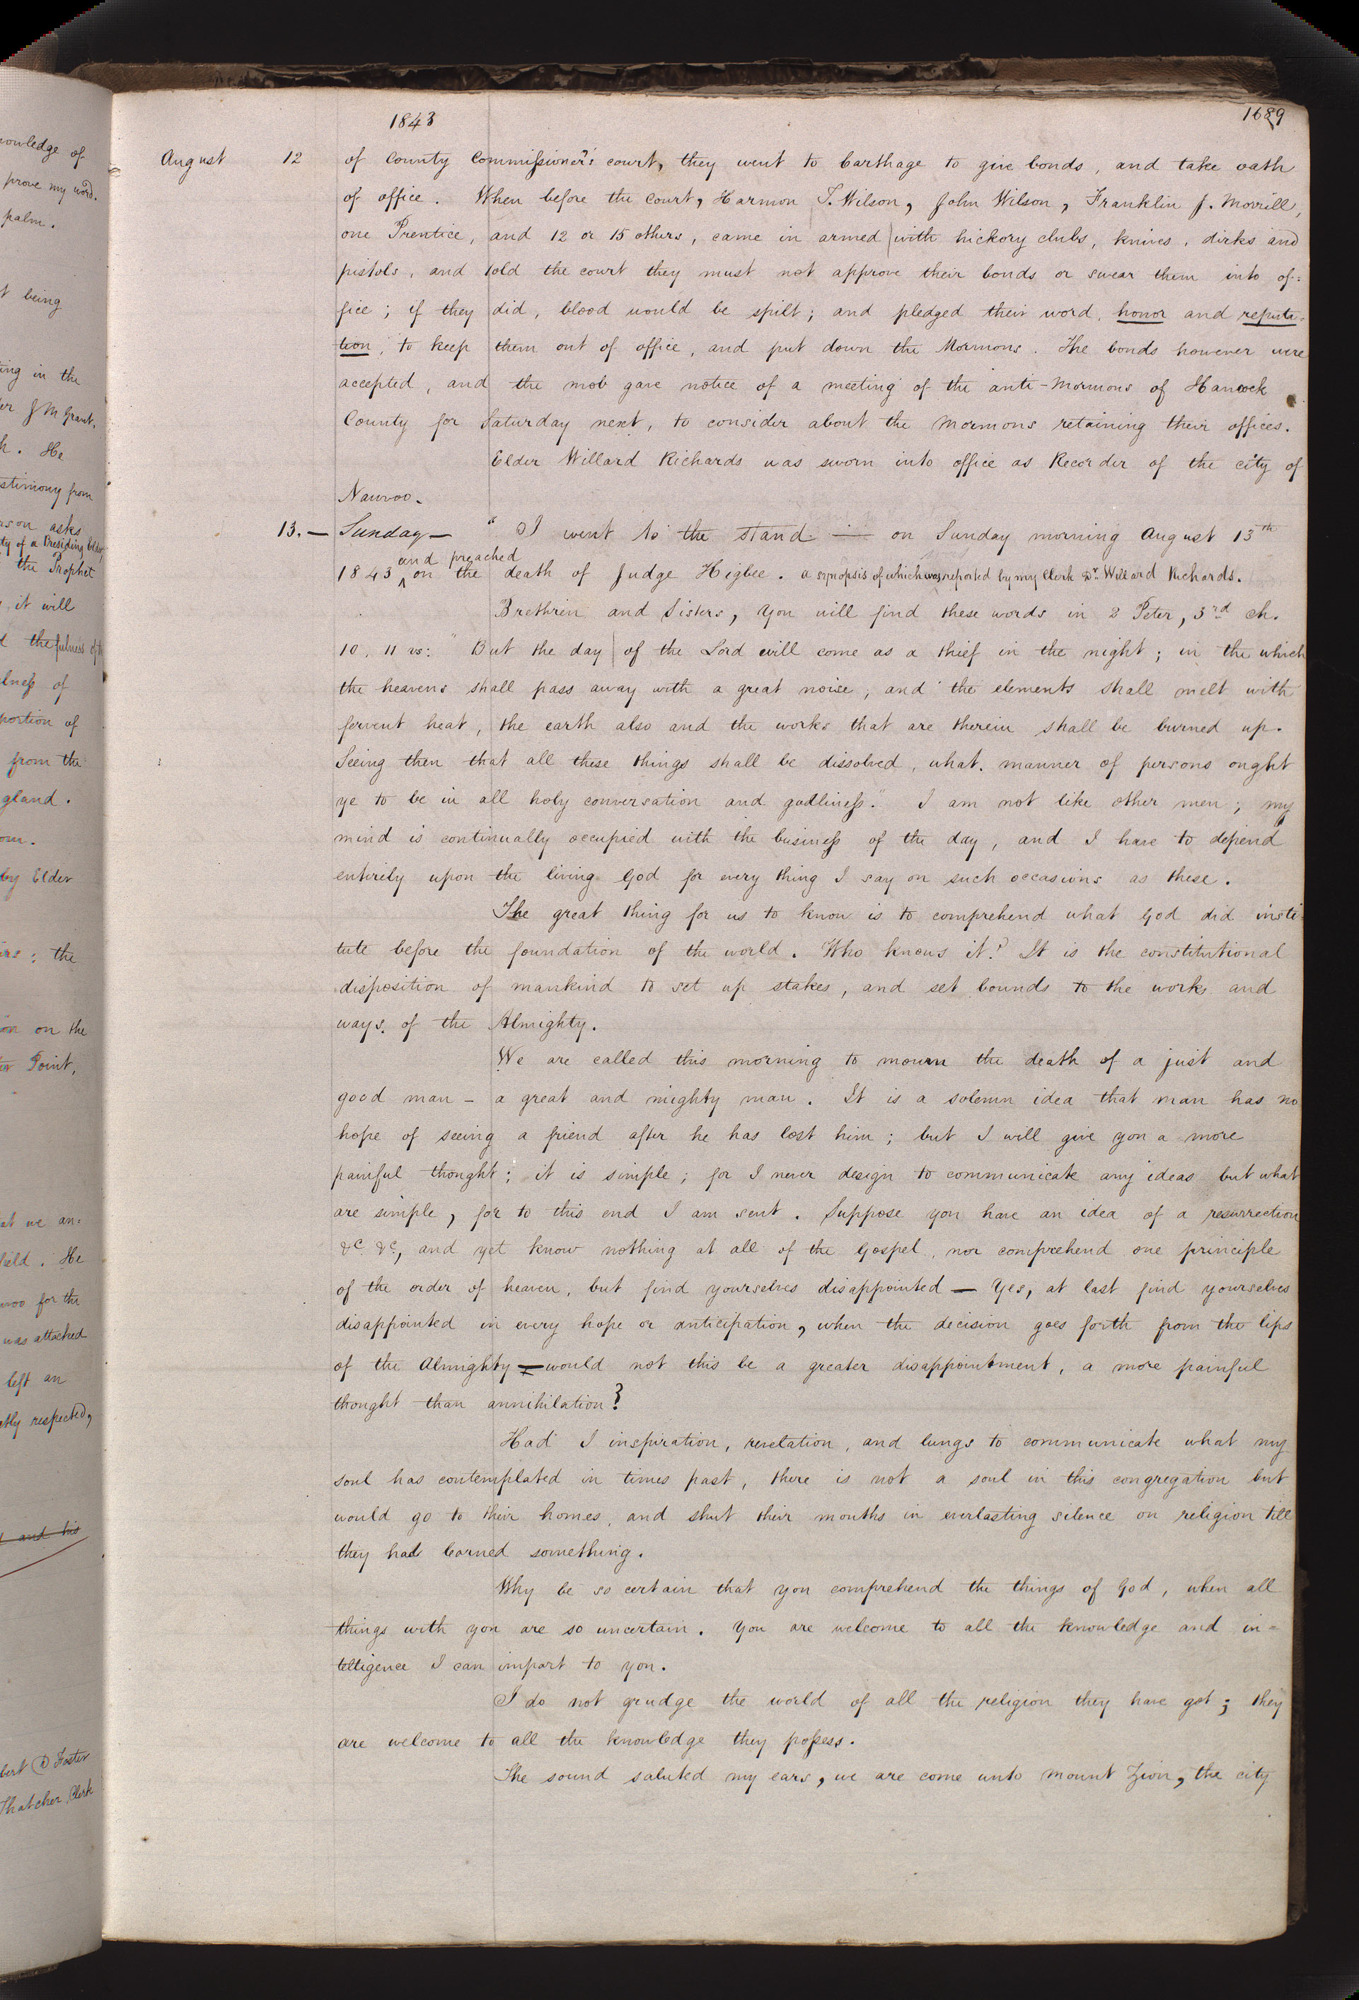 nowledge of
prove my word.
palm.
t being
ing in the
er J M Grant.
h. He
stimony from
rson asks
ty of a Presiding Elder
the Prophet
it will
d the fulness of the
lness of
portion of
from the
gland.
by Elder
ers; the
on on the
Point,
at we an=
ield. He
uvoo for the
was attached
left an
tly respected,
and his
bert D Foster
Thatcher Clerk
1843
1689
August 12 of County Commissioner's court, they went to Carthage to give bonds, and take oath
of office. When before the court, Harmon T. Wilson, John Wilson, Franklin J. Morrill,
one Prentice, and 12 or 15 others, came in armed with hickory clubs, knives, dirks and
pistols, and told the court they must not approve their bonds or swear them into of=
fice; if they did, blood would be spilt; and pledged their word, honor and reputa-
tion, to keep them out of office, and put down the Mormons. The bonds however were
accepted, and the mob gave notice of a meeting of the anti-Mormons of Hancock
County for Saturday next, to consider about the Mormons retaining their offices.
Elder Willard Richards was sworn into office as Recorder of the city of
Nauvoo.
13. — Sunday — "I went to the stand — on Sunday morning August 13th
1843 and preached on the death of Judge Higbee. a synopsis of which was reported by my Clerk Dr. Willard Richards.
Brethren and Sisters, you will find these words in 2 Peter, 3rd ch.
10, 11 vs: "But the day of the Lord will come as a thief in the night; in the which
the heavens shall pass away with a great noise, and the elements shall melt with
fervent heat, the earth also and the works that are therein shall be burned up.
Seeing then that all these things shall be dissolved, what manner of persons ought
ye to be in all holy conversation and godliness." I am not like other men; my
mind is continually occupied with the business of the day, and I have to depend
entirely upon the living God for every thing I say on such occasions as these.
The great thing for us to know is to comprehend what God did insti
tute before the foundation of the world. Who knows it? It is the constitutional
disposition of mankind to set up stakes, and set bounds to the works and
ways of the Almighty.
We are called this morning to mourn the death of a just and
good man – a great and mighty man. It is a solemn idea that man has no
hope of seeing a friend after he has lost him; but I will give you a more
painful thought; it is simple; for I never design to communicate any ideas but what
are simple, for to this end I am sent. Suppose you have an idea of a resurrection
&c &c, and yet know nothing at all of the Gospel, nor comprehend one principle
of the order of heaven, but find yourselves disappointed — Yes, at last find yourselves
disappointed in every hope or anticipation, when the decision goes forth from the lips
of the Almighty — would not this be a greater disappointment, a more painful
thought than annihilation?
Had I inspiration, revelation, and lungs to communicate what my
soul has contemplated in times past, there is not a soul in this congregation but
would go to their homes, and shut their mouths in everlasting silence on religion till
they had learned something.
Why be so certain that you comprehend the things of God, when all
things with you are so uncertain. You are welcome to all the knowledge and in=
telligence I can impart to you.
I do not grudge the world of all the religion they have got; they
are welcome to all the knowledge they possess.
The sound saluted my ears, we are come unto Mount Zion, the city